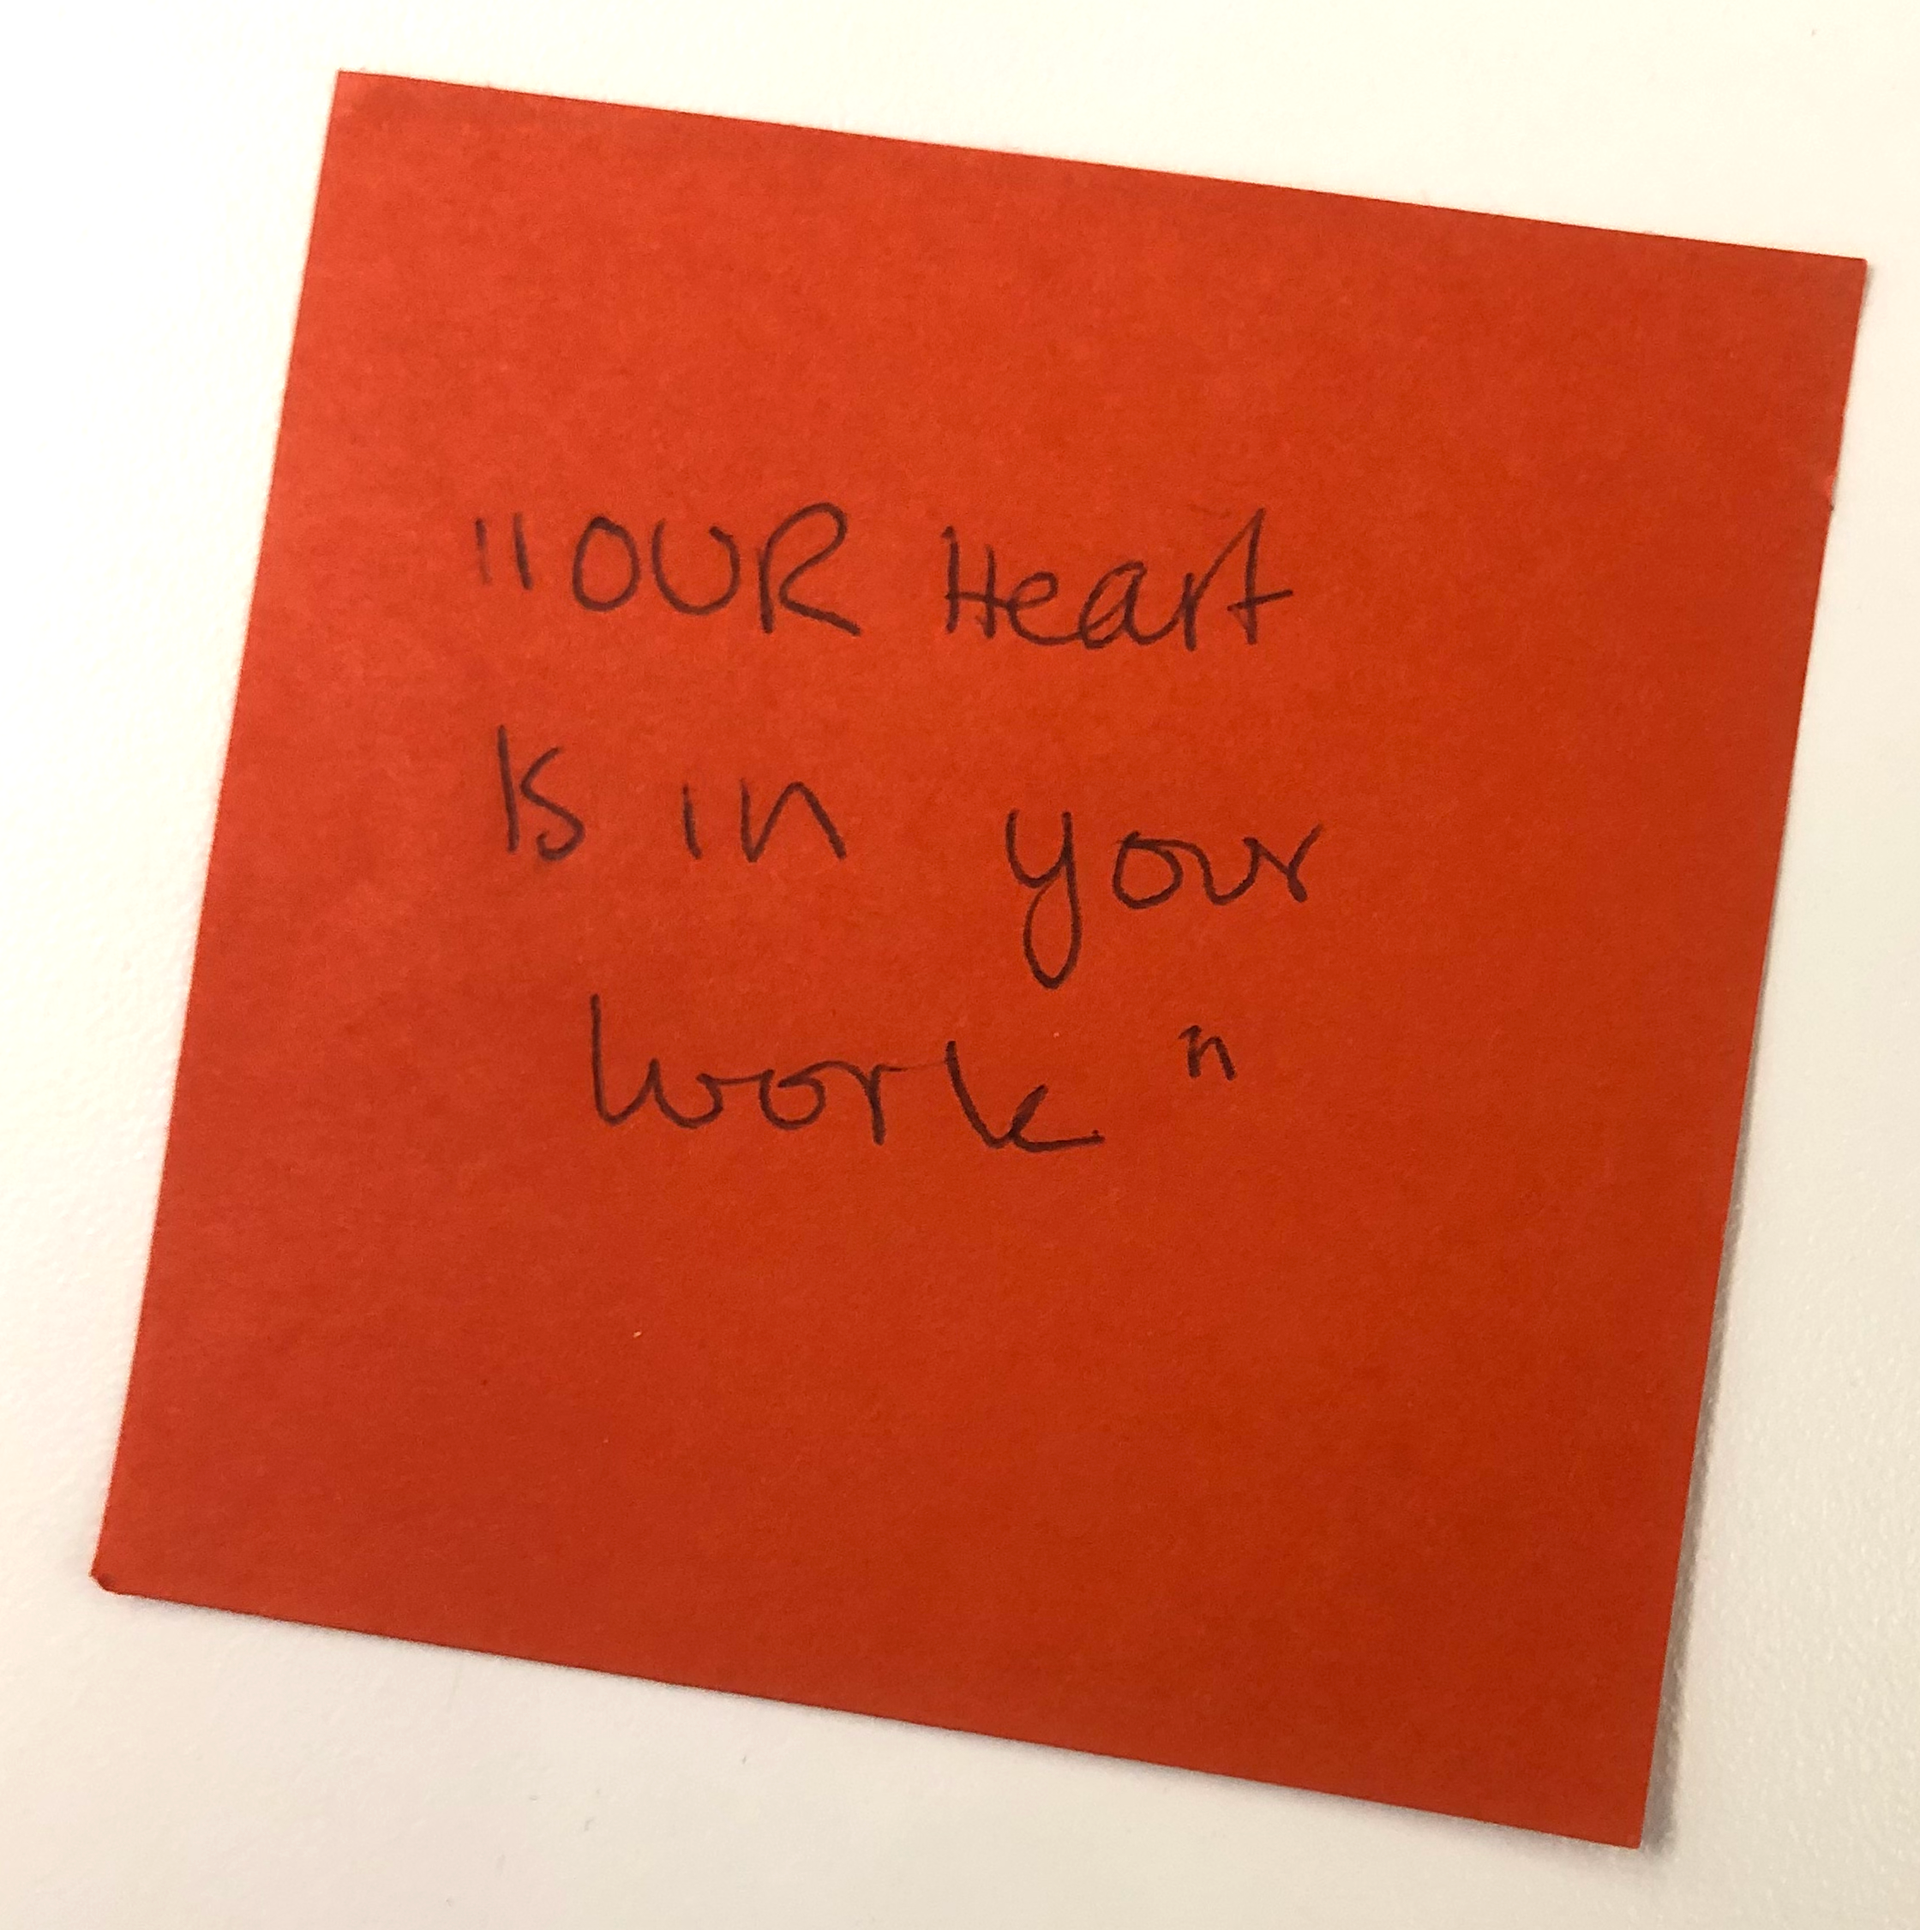 "OUR Heart
Is in your
work"